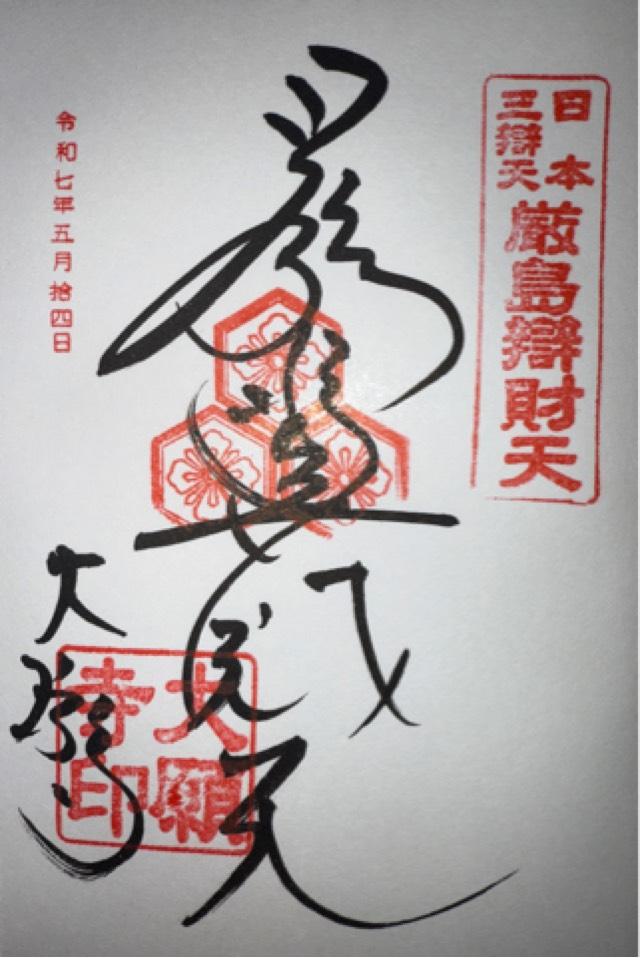 日本
三辯天
厳島辯財天
天
令和七年五月拾四日
大願寺
大願
寺印